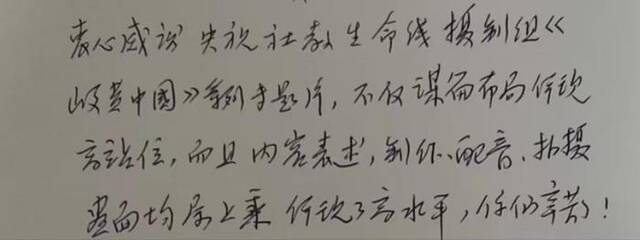 衷心感谢央视社教生命线摄制组《
岐黄中国》系列专题片,不仅谋篇布局体现
高站位,而且内容表述,制作、配音、拍摄
画面均属上乘 体现了高水平,你们辛苦了!